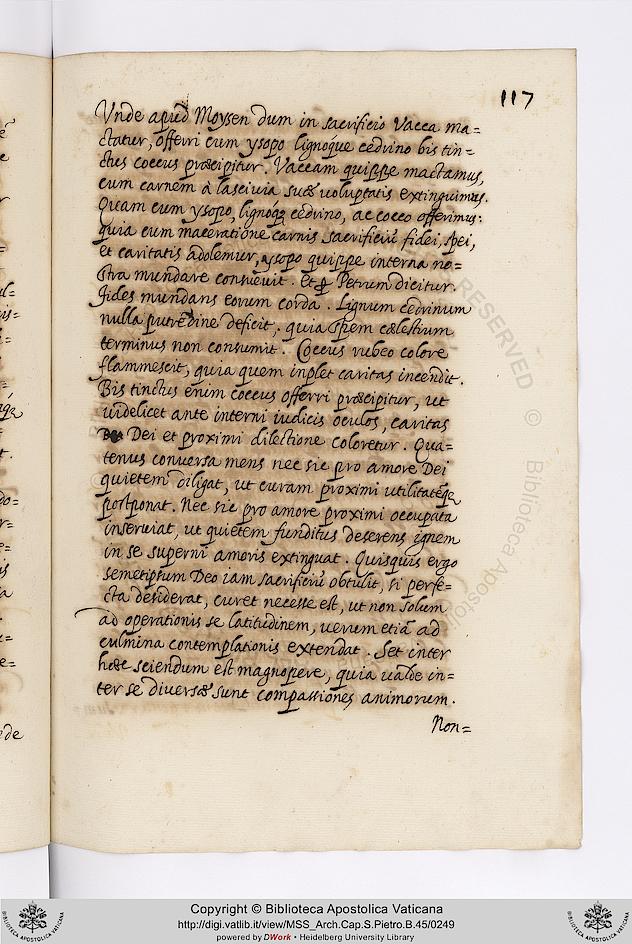 117
Vnde apud Moysen dum in sacrificio Vacca ma=
ctatur, offerri cum ysopo lignoque cedrino bis tin=
ctus coccus præcipitur. Vaccam quippe mactamus,
cum carnem à lascivia suæ voluptatis extinguimus.
Quam cum ysopo, lignoq; cedrino, ac cocco offerimus:
quia cum maceratione carnis sacrificiū fidei, spei,
et caritatis adolemur, ysopo quippe interna no=
stra mundare consueuit. Et ꝑ Petrum dicitur.
Fides mundans eorum corda. Lignum cedrinum
nulla putredine deficit, quia spem cælestium
terminus non consumit. Coccus rubeo colore
flammescit, quia quem inplet caritas incendit.
Bis tinctus enim coccus offerri præcipitur, ut
uidelicet ante interni iudicis oculos, caritas
Dei et proximi dilectione coloretur. Qua=
tenus conversa mens nec sic pro amore Dei
quietem diligat, ut curam proximi utilitatēq;
postponat. Nec sic pro amore proximi occupata
inserviat, ut quietem funditus deserens ignem
in se superni amoris extinguat. Quisquis ergo
semetipsum Deo iam sacrificiū obtulit, si perfe=
cta desiderat, curet necesse est, ut non solum
ad operationis se latitudinem, uerum etiā ad
culmina contemplationis extendat. Set inter
hæc sciendum est magnopere, quia ualde in=
ter se diversæ sunt compassiones animorum.
Non=
RESERVED
© Biblioteca Apostolica
Copyright © Biblioteca Apostolica Vaticana
http://digi.vatlib.it/view/MSS_Arch.Cap.S.Pietro.B.45/0249
powered by DWork • Heidelberg University Library